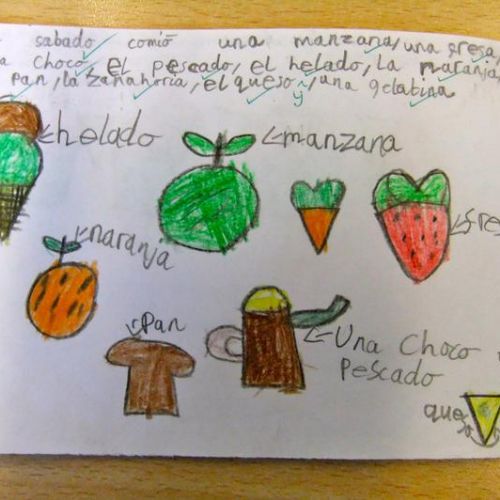 sabado comió una manzana, una fresa,
a choco, el pescado, el helado, la naranja
pan, la zanahoria, el queso y una gelatina
helado
manzana
fre
naranja
pan
Una Choco
Pescado
que
so